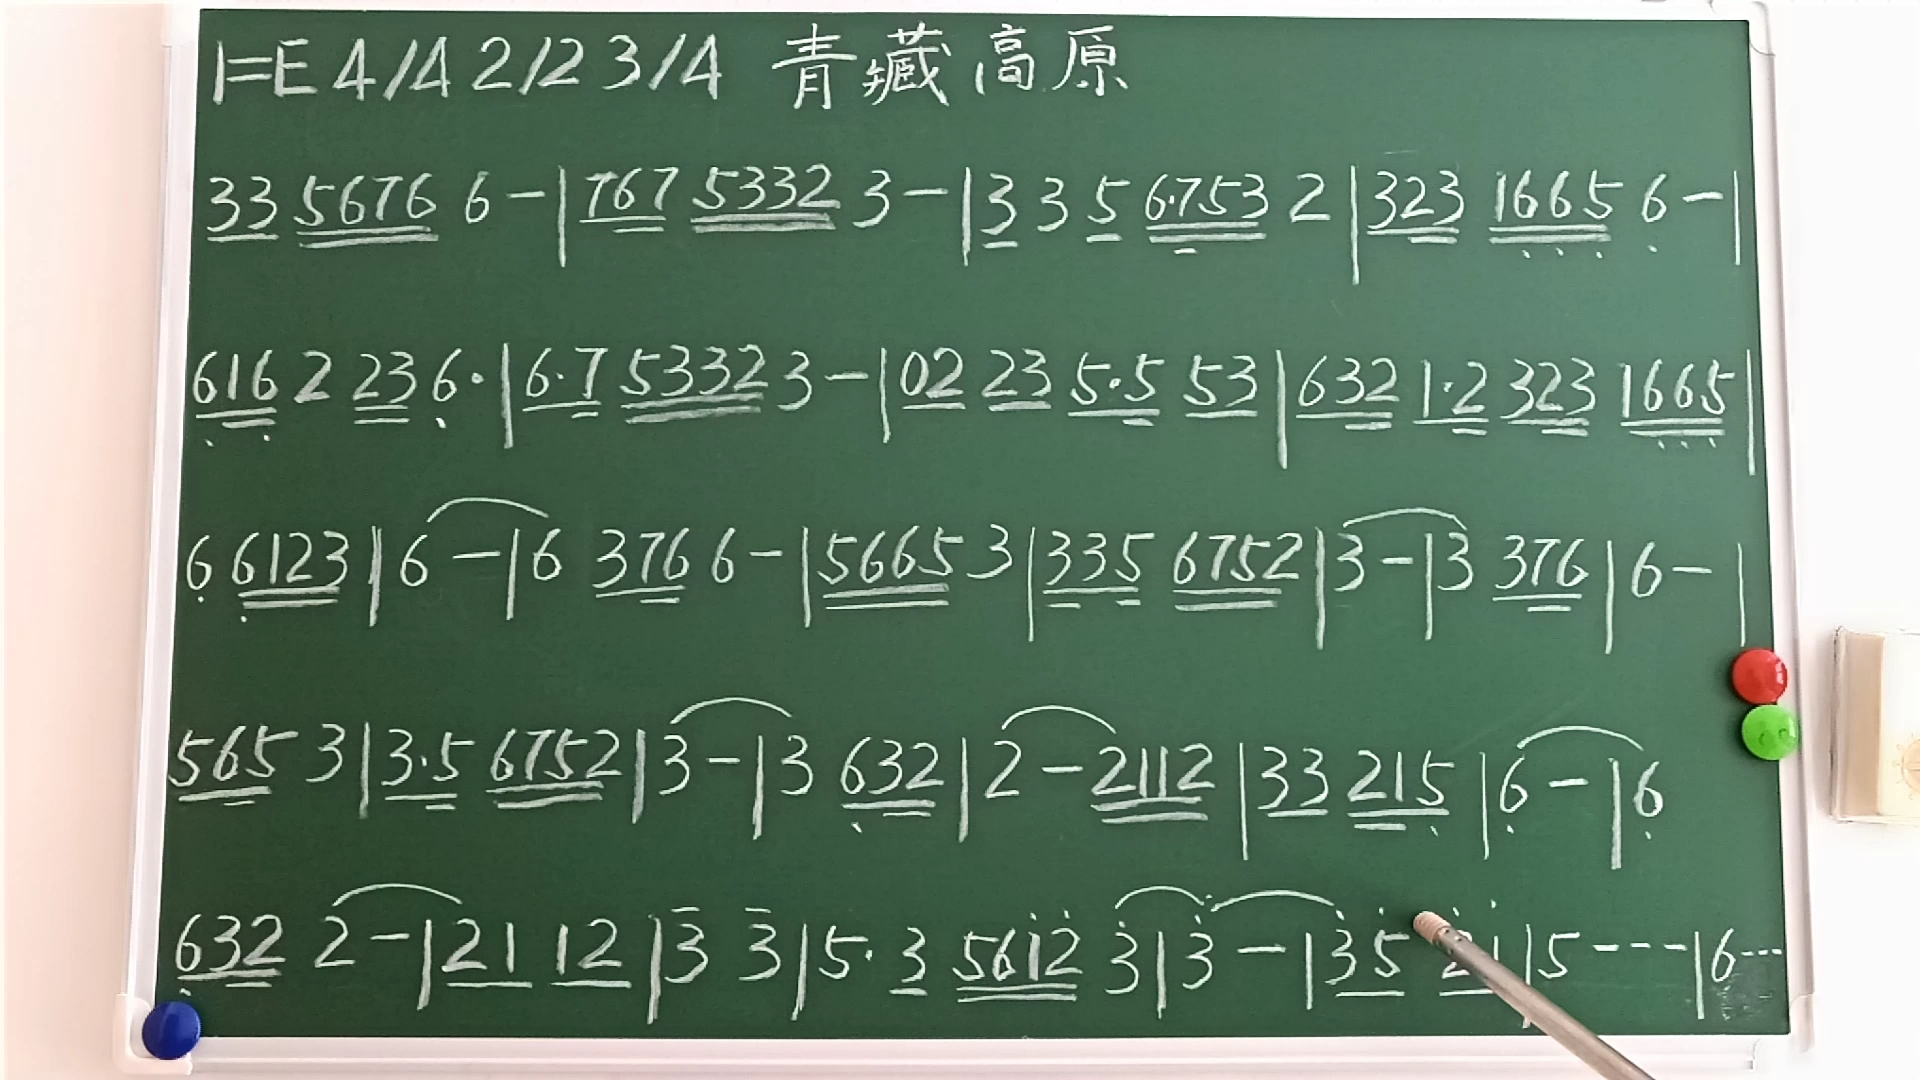 1=E 4/4 2/2 3/4 青藏高原
33 5676 6 - | 767 5332 3 - | 3 3 5 6·753 2 | 323 1665 6 - |
616 2 23 6· | 6·7 5332 3 - | 02 23 5·5 53 | 632 1·2 323 1665 |
6 6123 | 6 - | 6 376 6 - | 5665 3 | 335 6752 | 3 - | 3 376 | 6 - |
565 3 | 3·5 6752 | 3 - | 3 632 | 2 - 2112 | 33 215 | 6 - | 6
632 2 - | 21 12 | 3 3 | 5· 3 5612 3 | 3 - | 35 21 | 5 - - - | 6 - - -